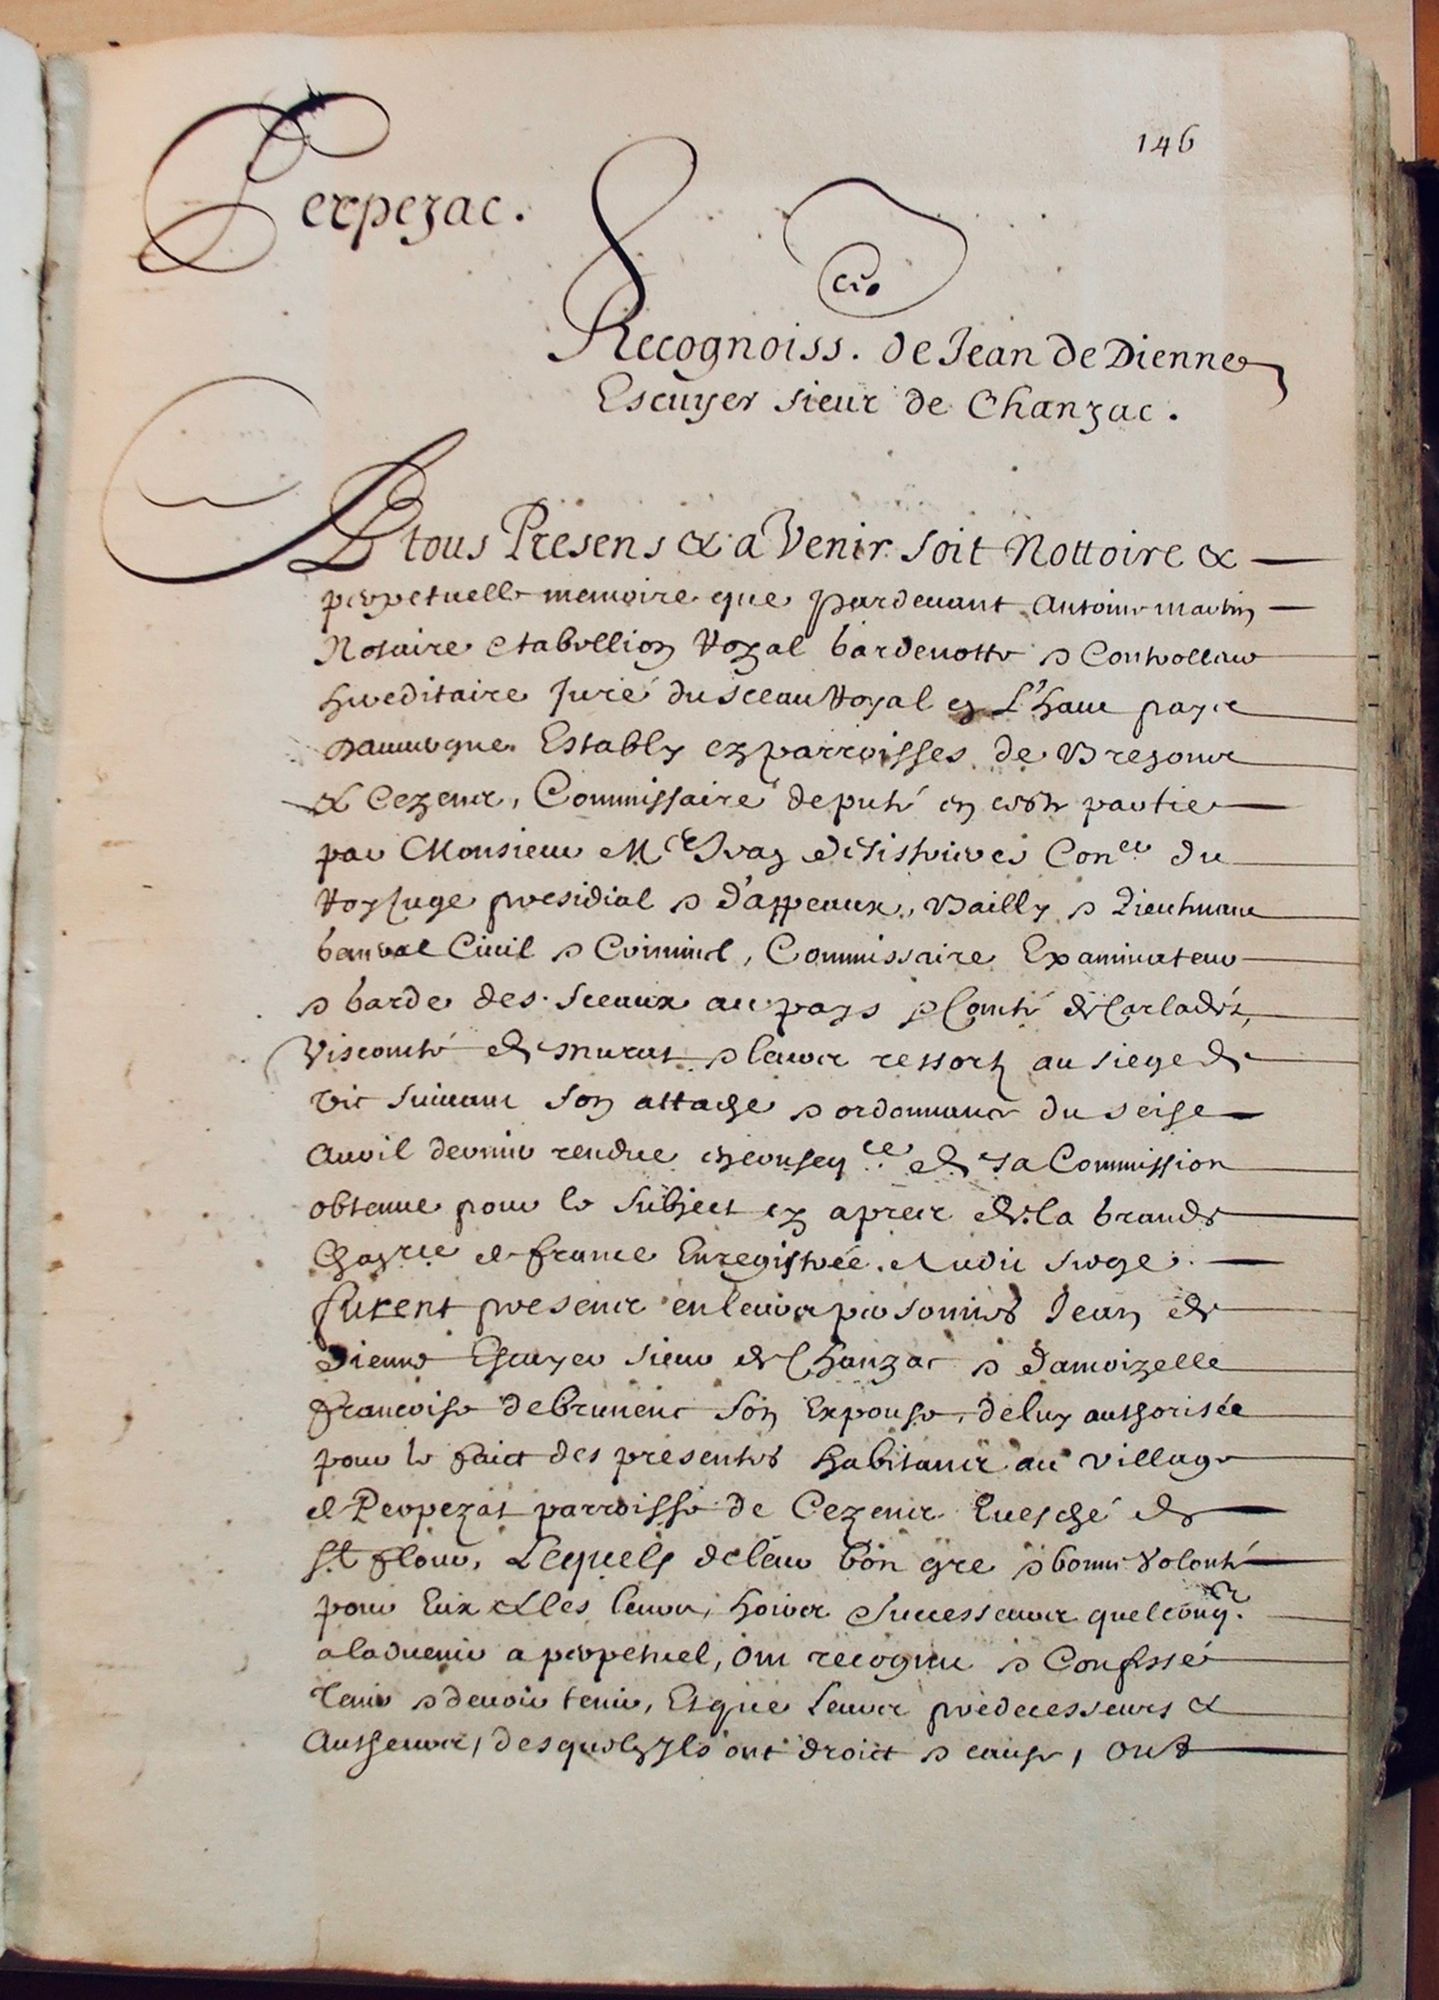 146
Perpezac.
Recognoiss. de Jean de Dienne
Escuyer sieur de Chanzac.
A tous Presens & a Venir soit Nottoire &
perpetuelle memoire que pardeuant Antoine martin
Notaire & tabellion Royal gardenotte & Controlleur
hereditaire Juré du sceau Royal en L'haut pays
d'auuergne Estably ez parroisses de Brezons
& Cezens, Commissaire deputé en ceste partie
par Monsieur Me de Con.er du
Roy Juge presidial & d'appeaux, Bailly & Lieutenant
general Ciuil & Criminel, Commissaire Examinateur
& garde des Sceaux au pays & Comté de Carladés,
Viscomté de Murat & leurs ressortz au siege de
Vic suiuant son attache & ordonnance du seise
Auril dernier rendue en conseq.ce de sa Commission
obtenue pour le subject ez apres de la grande
Chan.rie de france Enregistrée Audit siege.
furent presens en leurs personnes Jean de
Dienne Escuyer sieur de Chanzac & Damoizelle
francoise de brunenc son Expouse, de luy authorisée
pour le faict des presentes habitans au village
de Perpezat parroisse de Cezens Euesché de
St flour, Lesquels de leur bon gre & bonne Volonté
pour Eux & les leurs, hoirs successeurs quelconq.
a laduenir a perpetuel, ont recognu & Confessé
tenir & deuoir tenir, Et que leurs predecesseurs &
Autheurs, desquelz Ils ont droict & cause, ont